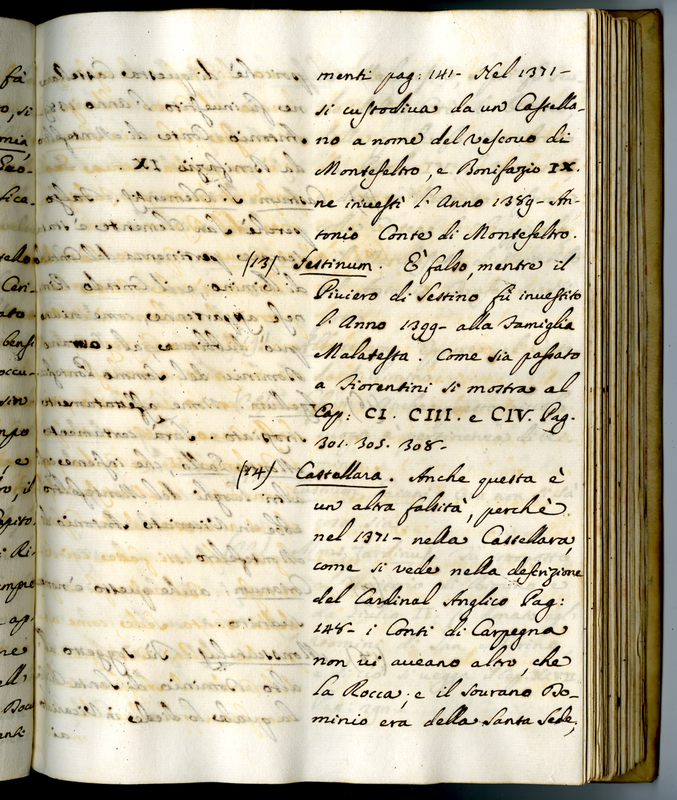 menti pag: 141- Nel 1371-
si custodiva da un Castella-
no a nome del vescovo di
Montefeltro, e Bonifazio IX.
ne investì l'Anno 1389- An-
tonio Conte di Montefeltro.
(13) Sestinum. È falso, mentre il
Piviero di Sestino fù investito
l'Anno 1399- alla Famiglia
Malatesta. Come sia passato
a Fiorentini si mostra al
Cap: CI. CIII. e CIV. Pag.
301. 305. 308-
(14) Castellara. Anche questa è
un altra falsità, perchè
nel 1371- nella Castellara,
come si vede nella descrizione
del Cardinal Anglico Pag:
148- i Conti di Carpegna
non vi aveano altro, che
la Rocca, e il sovrano Do-
minio era della Santa Sede,